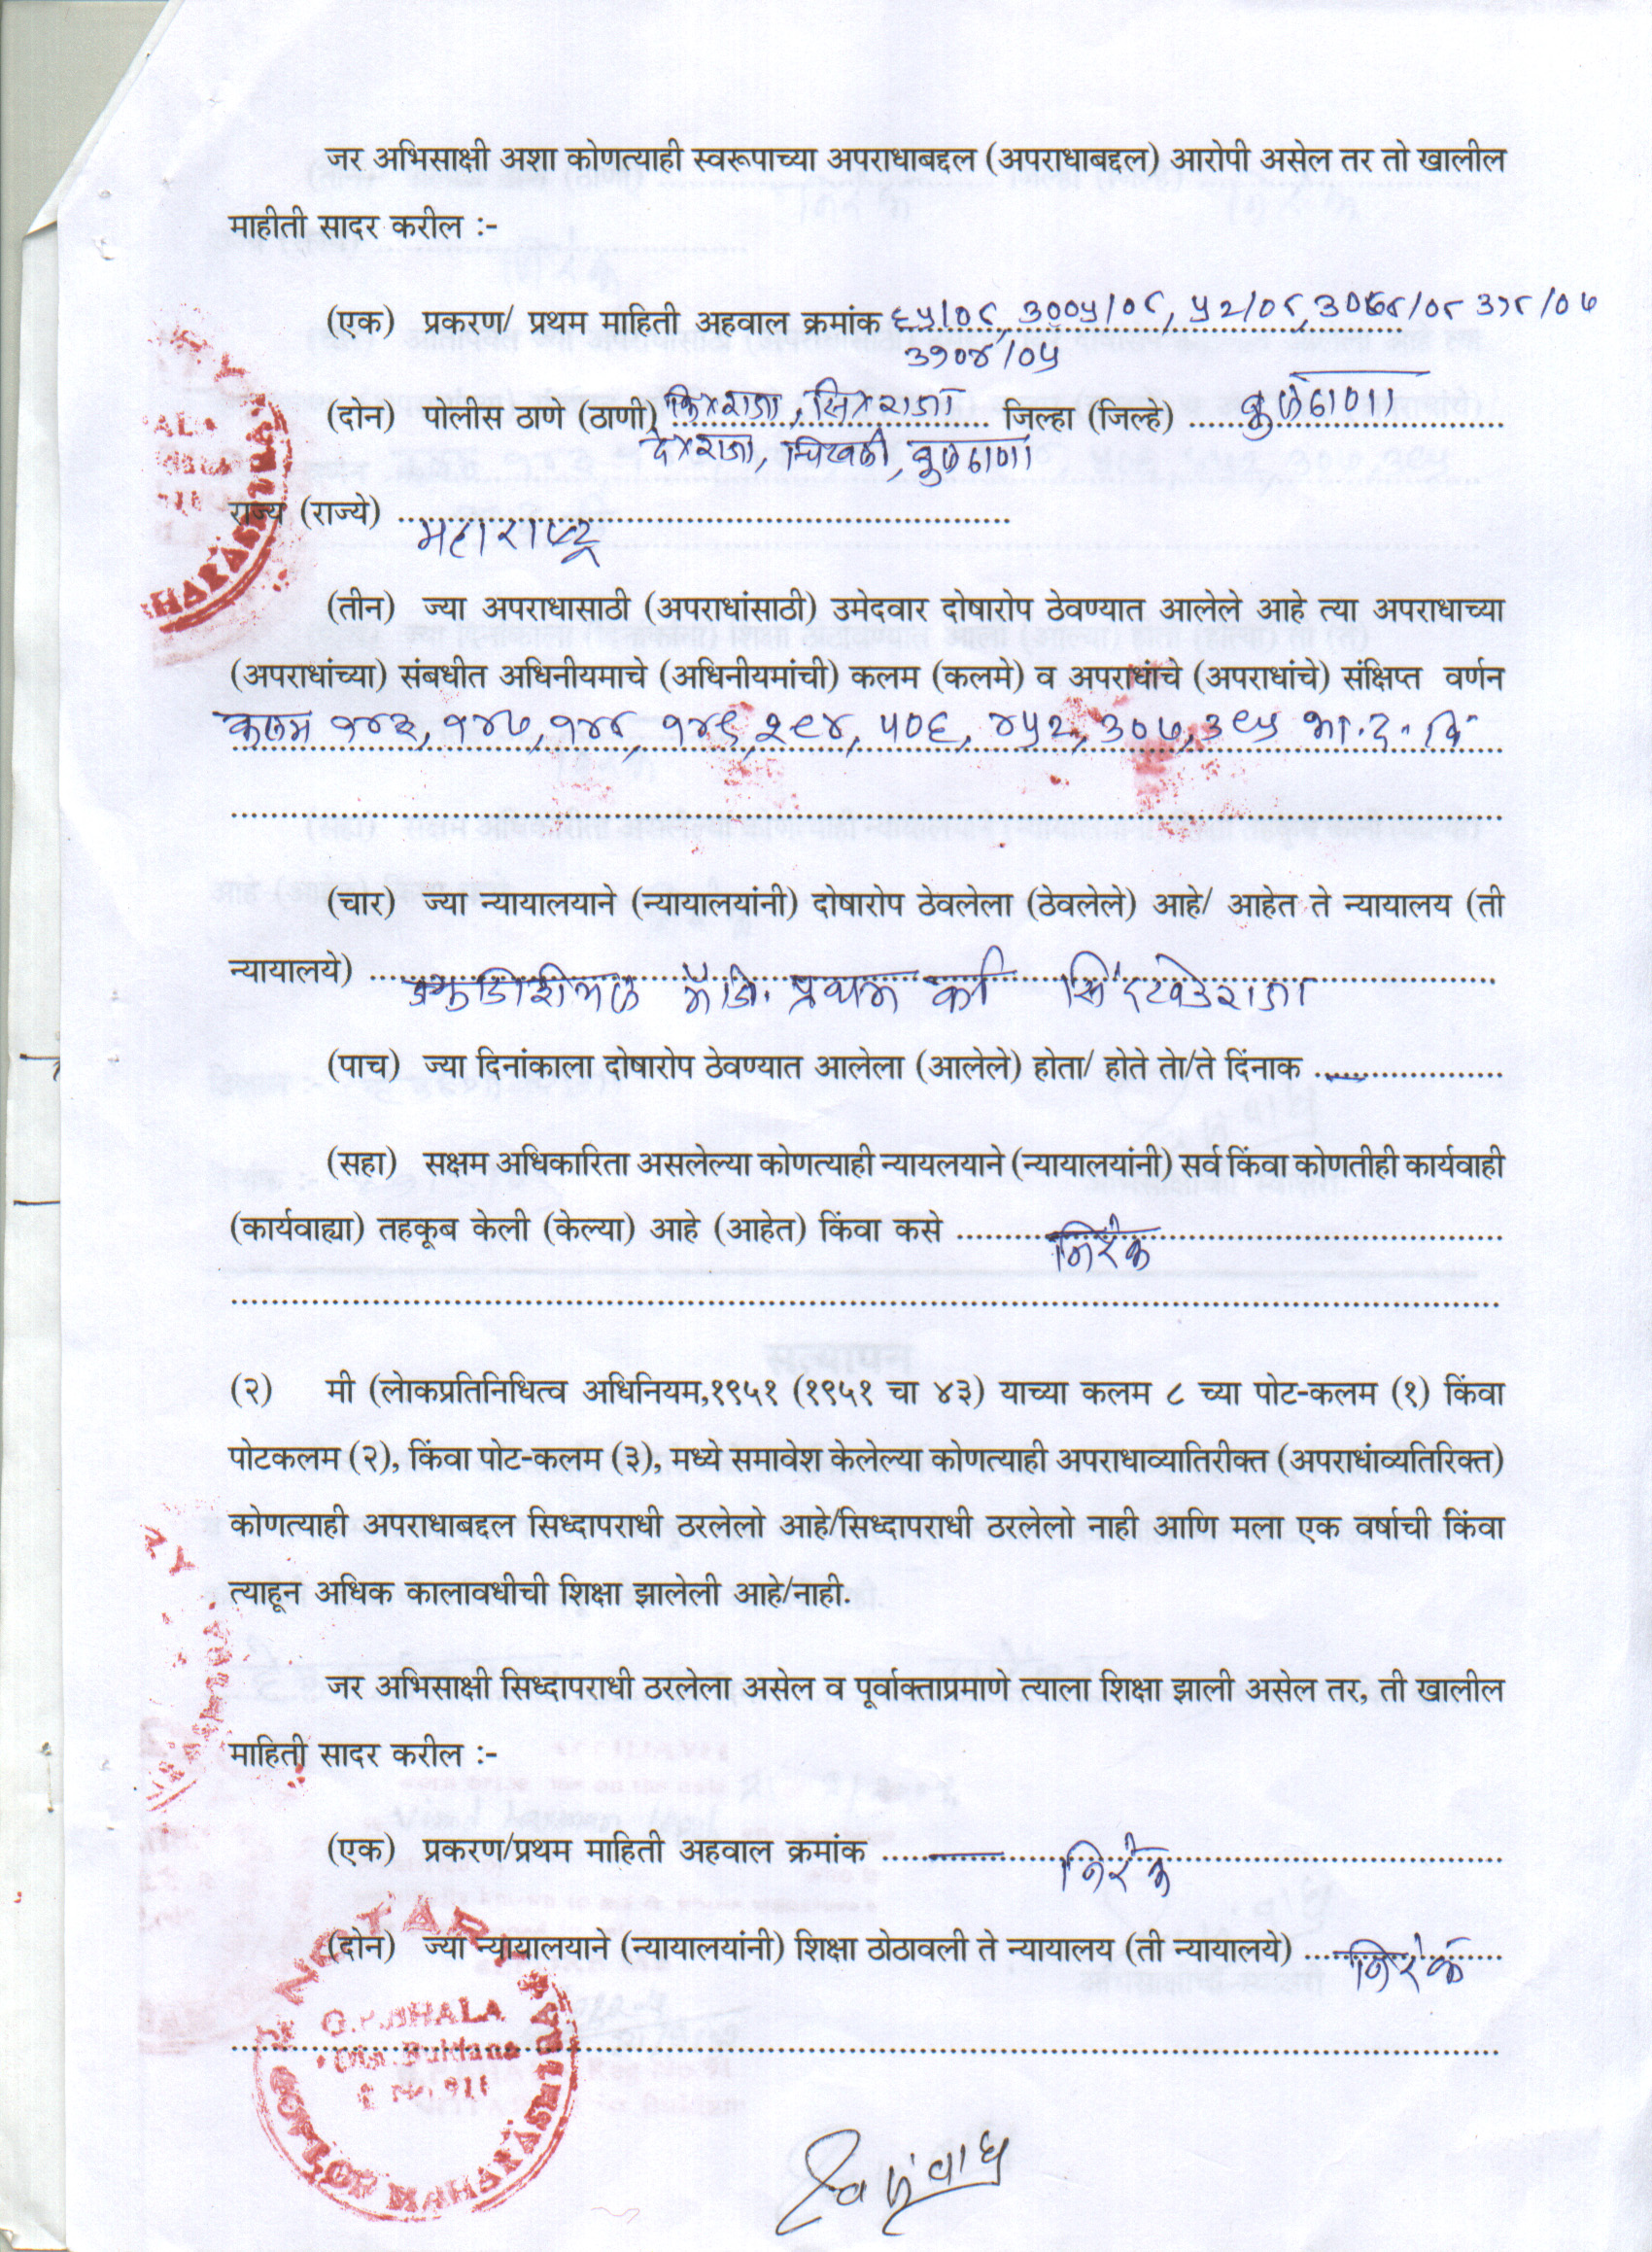 जर अभिसाक्षी अशा कोणत्याही स्वरूपाच्या अपराधाबद्दल (अपराधाबद्दल) आरोपी असेल तर तो खालील
माहीती सादर करील :-
(एक) प्रकरण/ प्रथम माहिती अहवाल क्रमांक ६५/०८, ३००५/०८, ५२/०८,
३१०४/०५
(दोन) पोलीस ठाणे (ठाणी) जिल्हा (जिल्हे) बुलढाणा
चिखली, बुलढाणा
राज्य (राज्ये)
महाराष्ट्र
(तीन) ज्या अपराधासाठी (अपराधांसाठी) उमेदवार दोषारोप ठेवण्यात आलेले आहे त्या अपराधाच्या
(अपराधांच्या) संबधीत अधिनीयमाचे (अधिनीयमांची) कलम (कलमे) व अपराधांचे (अपराधांचे) संक्षिप्त वर्णन
कलम १४३, १४७, १४८, १४९, २९४, ५०६, ४५२, ३०७, ३९५ भा.द.वि
(चार) ज्या न्यायालयाने (न्यायालयांनी) दोषारोप ठेवलेला (ठेवलेले) आहे/ आहेत ते न्यायालय (ती
न्यायालये) मॅजि. प्रथम वर्ग सिंदखेडराजा
(पाच) ज्या दिनांकाला दोषारोप ठेवण्यात आलेला (आलेले) होता/ होते तो/ते दिंनाक —
(सहा) सक्षम अधिकारिता असलेल्या कोणत्याही न्यायलयाने (न्यायालयांनी) सर्व किंवा कोणतीही कार्यवाही
(कार्यवाह्या) तहकूब केली (केल्या) आहे (आहेत) किंवा कसे निरंक
(२) मी (लोकप्रतिनिधित्व अधिनियम,१९५१ (१९५१ चा ४३) याच्या कलम ८ च्या पोट-कलम (१) किंवा
पोटकलम (२), किंवा पोट-कलम (३), मध्ये समावेश केलेल्या कोणत्याही अपराधाव्यातिरीक्त (अपराधांव्यतिरिक्त)
कोणत्याही अपराधाबद्दल सिध्दापराधी ठरलेलो आहे/सिध्दापराधी ठरलेलो नाही आणि मला एक वर्षाची किंवा
त्याहून अधिक कालावधीची शिक्षा झालेली आहे/नाही.
जर अभिसाक्षी सिध्दापराधी ठरलेला असेल व पूर्वाक्ताप्रमाणे त्याला शिक्षा झाली असेल तर, ती खालील
माहिती सादर करील :-
(एक) प्रकरण/प्रथम माहिती अहवाल क्रमांक — निरंक
(दोन) ज्या न्यायालयाने (न्यायालयांनी) शिक्षा ठोठावली ते न्यायालय (ती न्यायालये) निरंक
NOTARY
G.P.BHALA
Dist. Buldana